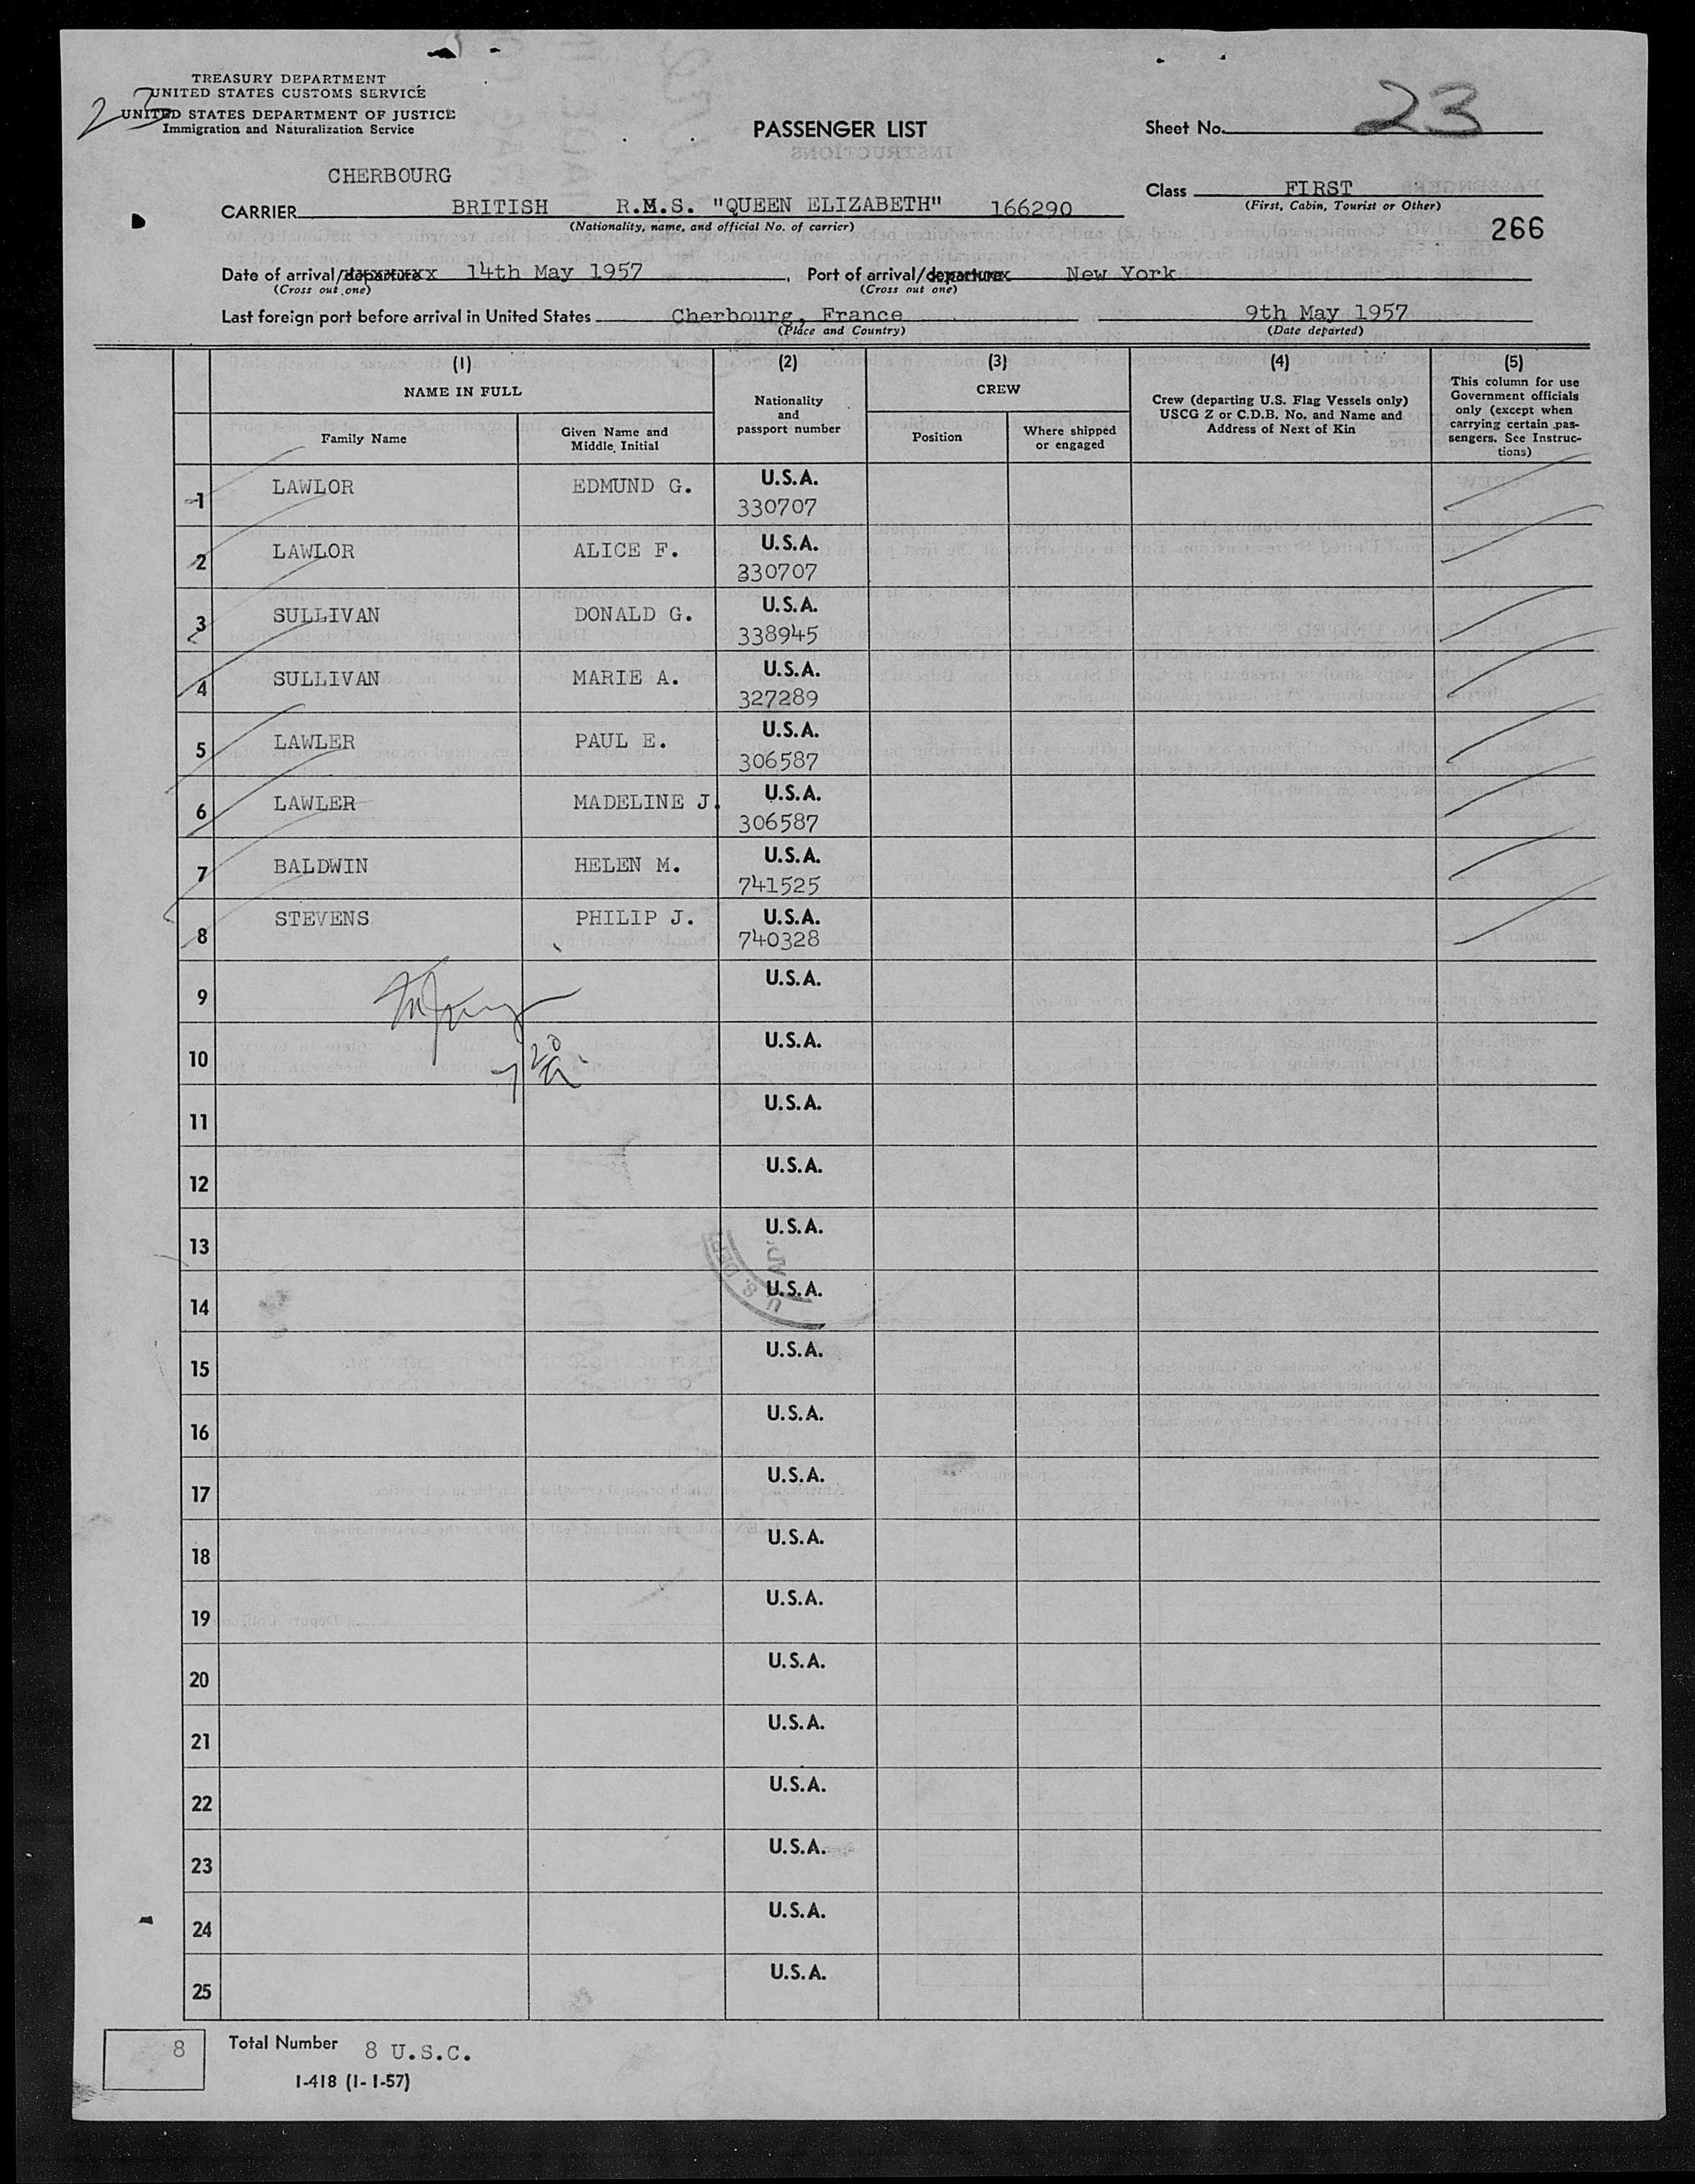 TREASURY DEPARTMENT
UNITED STATES CUSTOMS SERVICE
UNITED STATES DEPARTMENT OF JUSTICE
Immigration and Naturalization Service
23
PASSENGER LIST
Sheet No. 23
CHERBOURG
CARRIER BRITISH R.M.S. "QUEEN ELIZABETH" 166290
(Nationality, name, and official No. of carrier)
Class FIRST
(First, Cabin, Tourist or Other)
266
Date of arrival/departure 14th May 1957, Port of arrival/departure New York
(Cross out one) (Cross out one)
Last foreign port before arrival in United States Cherbourg, France 9th May 1957
(Place and Country) (Date departed)
(1) (2) (3) (4) (5)
NAME IN FULL
Family Name
Given Name and Middle Initial
Nationality and passport number
CREW
Position
Where shipped or engaged
Crew (departing U.S. Flag Vessels only) USCG Z or C.D.B. No. and Name and Address of Next of Kin
This column for use Government officials only (except when carrying certain pas- sengers. See Instruc- tions)
1 LAWLOR EDMUND G. U.S.A. 330707
2 LAWLOR ALICE F. U.S.A. 330707
3 SULLIVAN DONALD G. U.S.A. 338945
4 SULLIVAN MARIE A. U.S.A. 327289
5 LAWLER PAUL E. U.S.A. 306587
6 LAWLER MADELINE J. U.S.A. 306587
7 BALDWIN HELEN M. U.S.A. 741525
8 STEVENS PHILIP J. U.S.A. 740328
9 U.S.A.
10 U.S.A.
11 U.S.A.
12 U.S.A.
13 U.S.A.
14 U.S.A.
15 U.S.A.
16 U.S.A.
17 U.S.A.
18 U.S.A.
19 U.S.A.
20 U.S.A.
21 U.S.A.
22 U.S.A.
23 U.S.A.
24 U.S.A.
25 U.S.A.
8 Total Number 8 U.S.C.
I-418 (1-1-57)